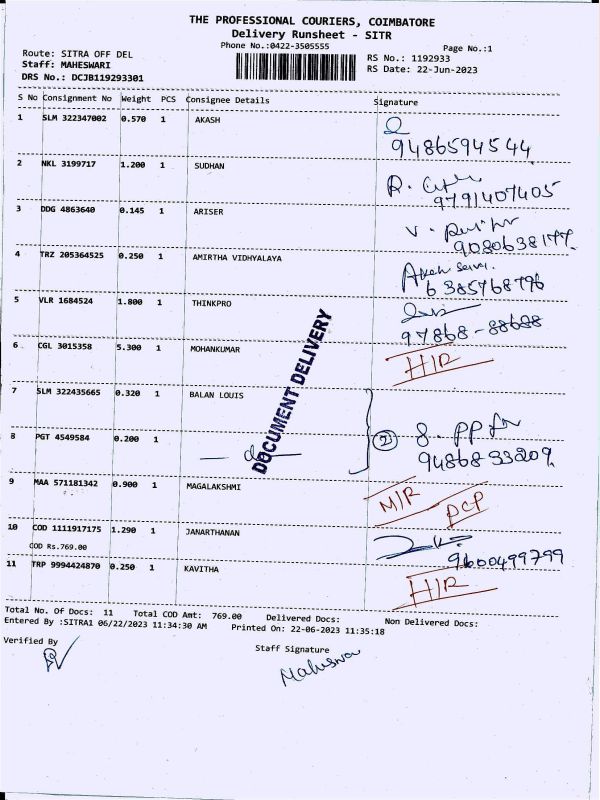 THE PROFESSIONAL COURIERS, COIMBATORE
Delivery Runsheet - SITR
Phone No.:0422-3505555
Page No.:1
Route: SITRA OFF DEL
Staff: MAHESWARI
DRS No.: DCJB119293301
RS No.: 1192933
RS Date: 22-Jun-2023
S No Consignment No Weight PCS Consignee Details Signature
1 SLM 322347002 0.570 1 AKASH
9486594544
2 NKL 3199717 1.200 1 SUDHAN
R.
9791407405
3 DDG 4863640 0.145 1 ARISER
V.
9080638177
4 TRZ 205364525 0.250 1 AMIRTHA VIDHYALAYA
6385768796
5 VLR 1684524 1.800 1 THINKPRO
97868-88688
6 CGL 3015358 5.300 1 MOHANKUMAR
H/R
DOCUMENT DELIVERY
7 SLM 322435665 0.320 1 BALAN LOUIS
8 PGT 4549584 0.200 1
— do —
2
9486833209
9 MAA 571181342 0.900 1 MAGALAKSHMI
M/R PCP
10 COD 1111917175 1.290 1 JANARTHANAN
COD Rs.769.00
9600499799
11 TRP 9994424870 0.250 1 KAVITHA
H/R
Total No. Of Docs: 11 Total COD Amt: 769.00 Delivered Docs: Non Delivered Docs:
Entered By :SITRA1 06/22/2023 11:34:30 AM Printed On: 22-06-2023 11:35:18
Verified By
Staff Signature